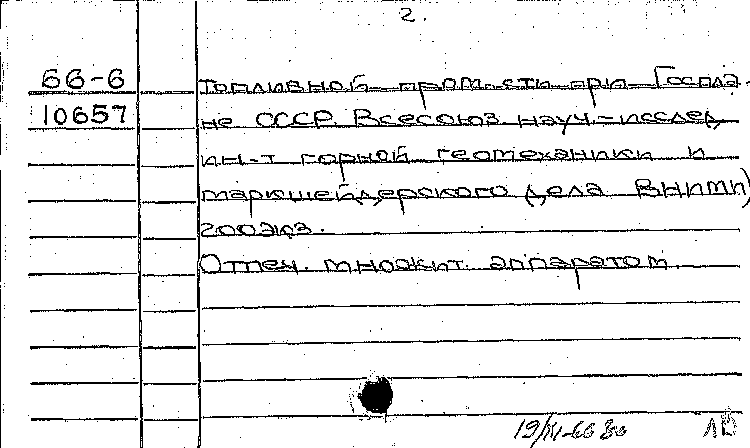 2.
66-6 топливной пром-сти при Госпла-
10657 не СССР. Всесоюз. науч.-исслед.
ин-т горной геотеханики и
маркшейдерского дела ВНИМИ)
200экз.
Отпеч. множит. аппаратом.